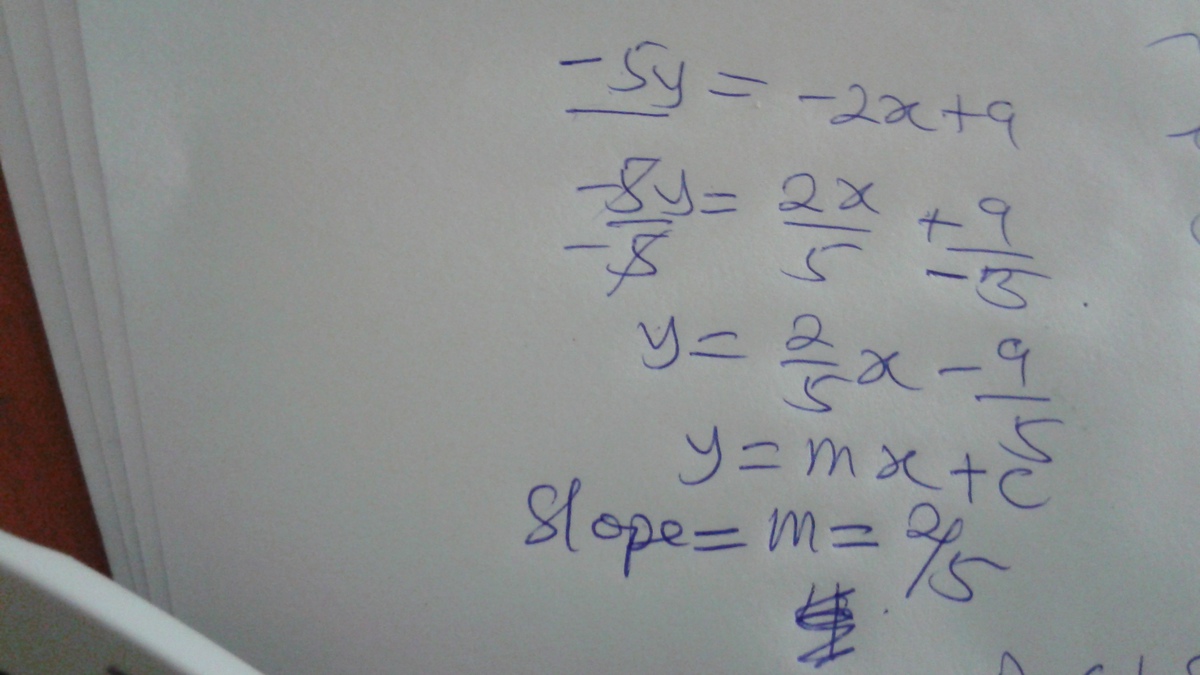 -5y = -2x+9
-5y/-5 = 2x/5 + 9/-5
y = 2/5 x - 9/5
y = mx+c
Slope = m = 2/5